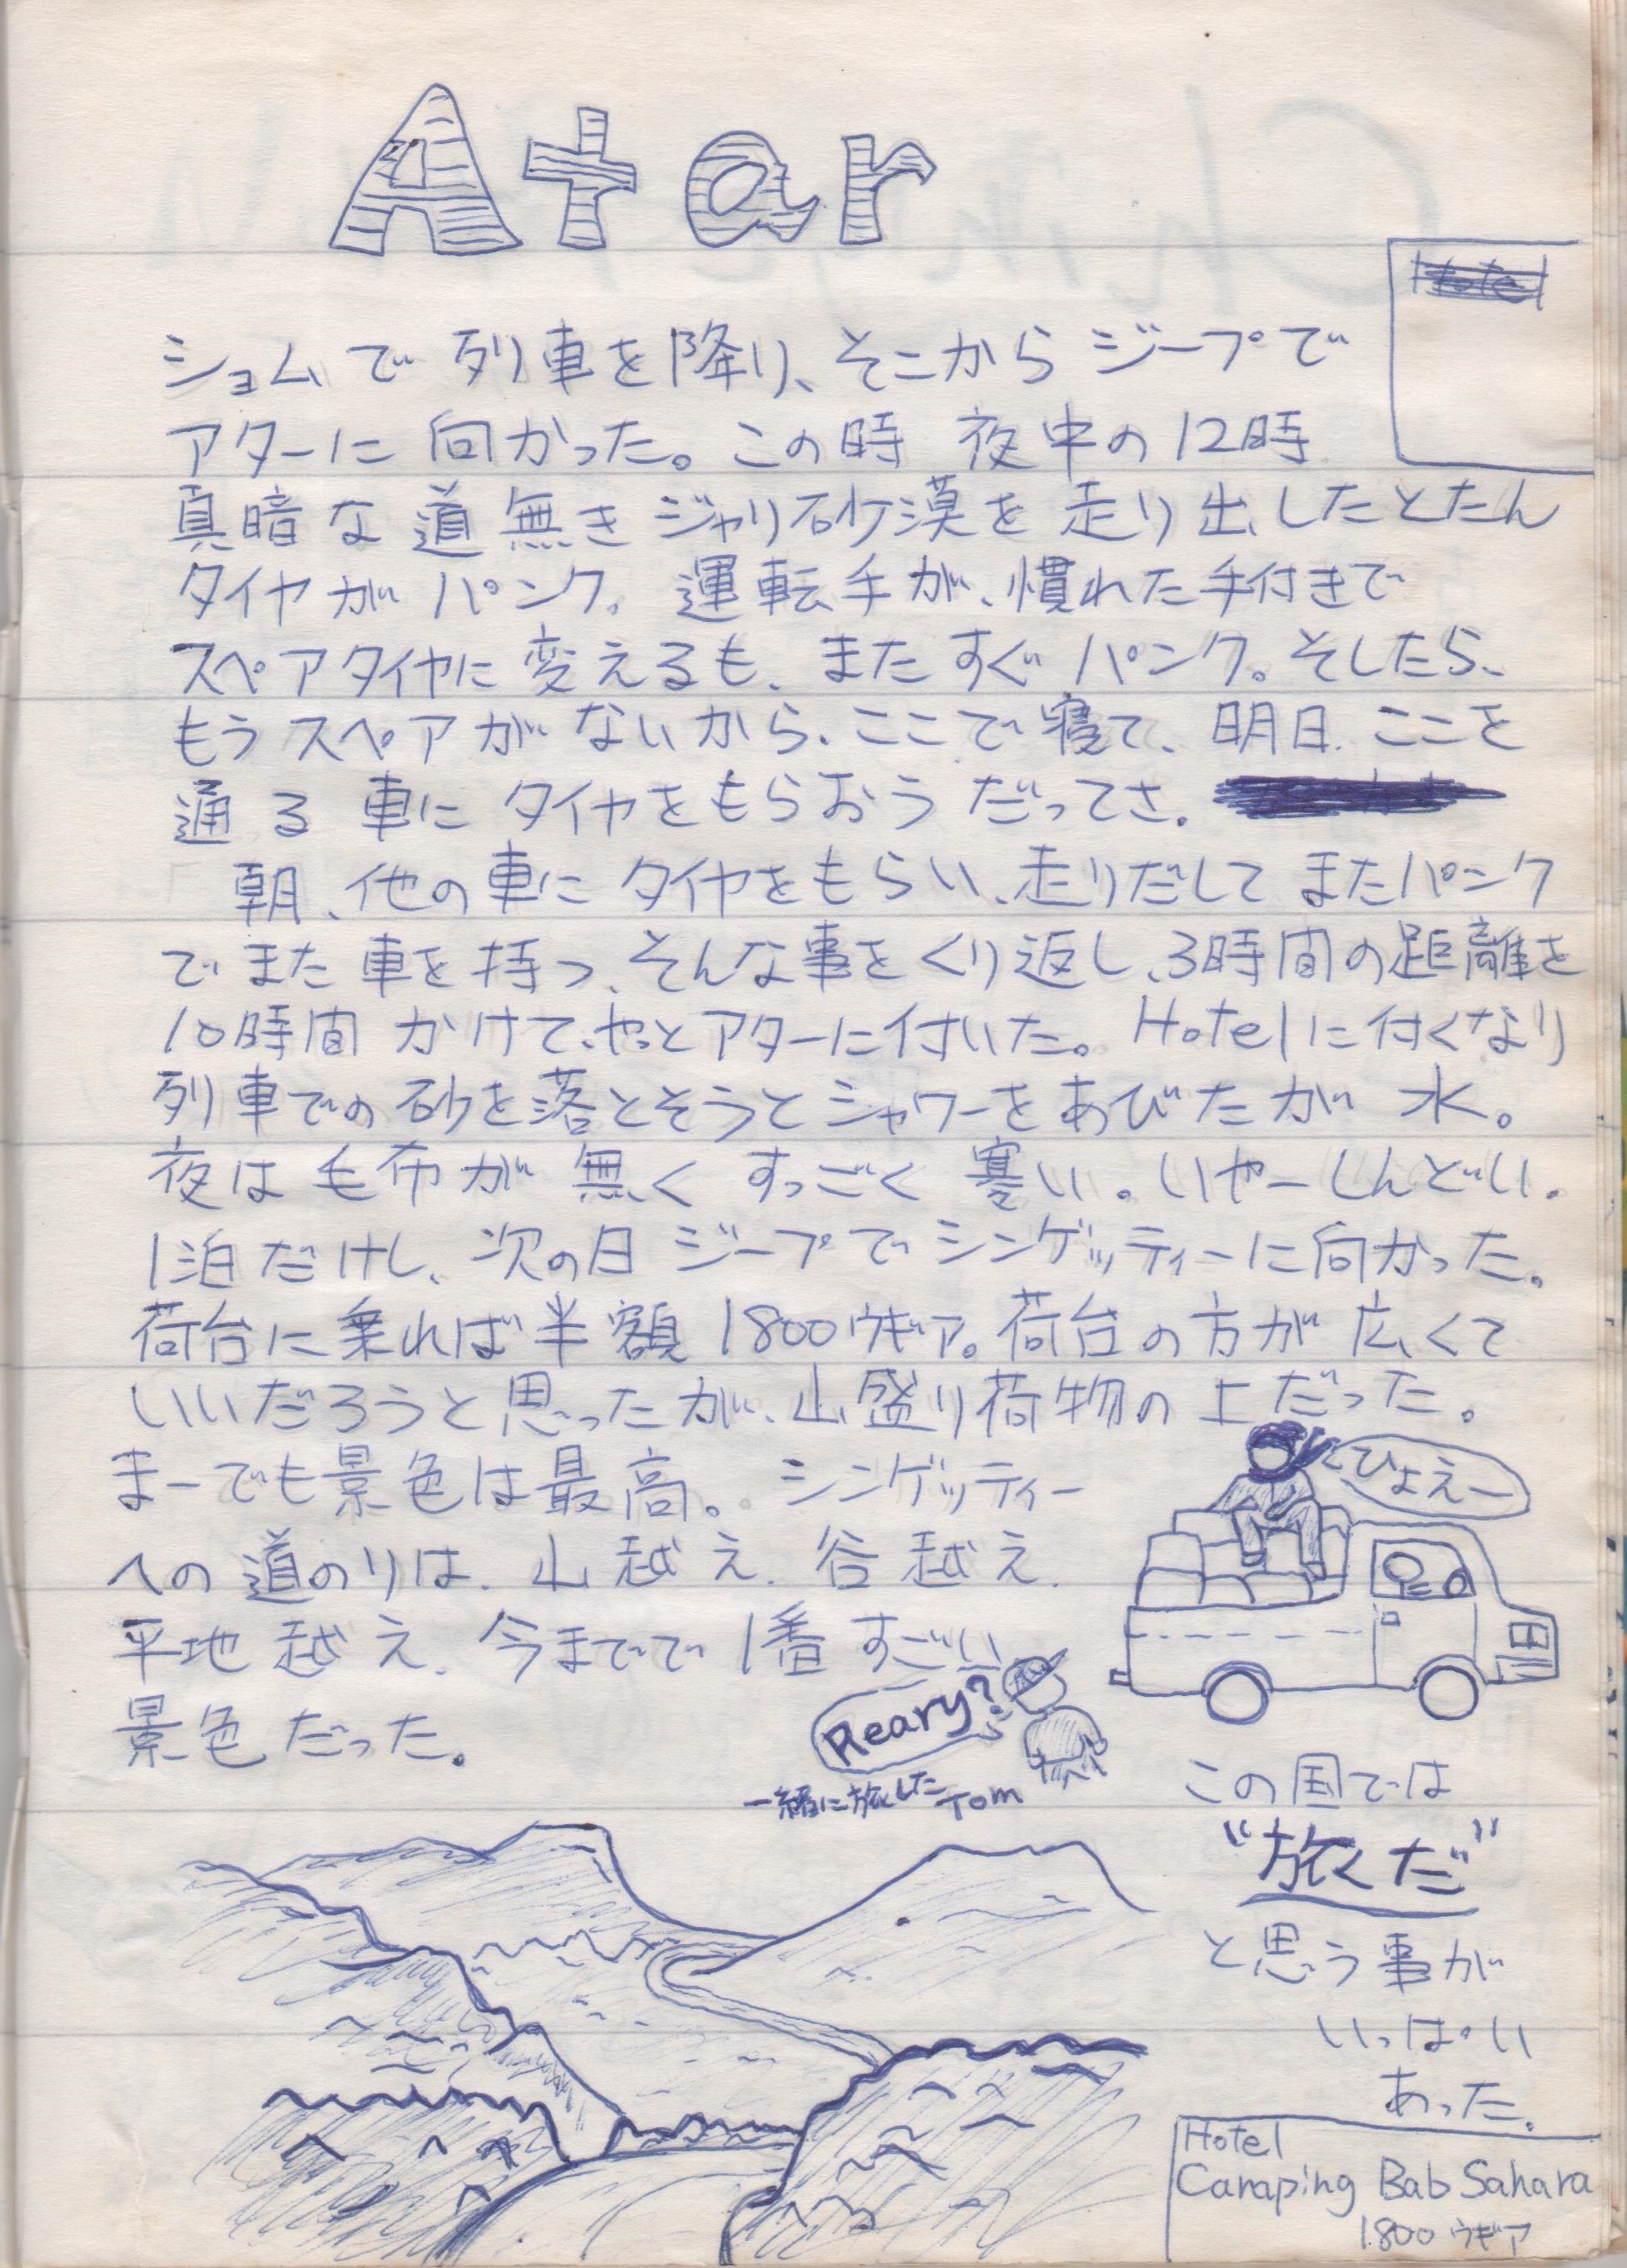 Atar
ショムで列車を降り、そこからジープで
アターに向かった。この時 夜中の12時
真暗な道無きジャリ砂漠を走り出したとたん
タイヤがパンク。運転手が、慣れた手付きで
スペアタイヤに変えるも、またすぐパンク。そしたら、
もうスペアがないから、ここで寝て、明日、ここを
通る車にタイヤをもらおうだってさ。
朝、他の車にタイヤをもらい、走りだしてまたパンク
でまた車を持つ、そんな事をくり返し、3時間の距離を
10時間かけて、やっとアターに付いた。Hotelに付くなり
列車での砂を落とそうとシャワーをあびたが水。
夜は毛布が無くすっごく寒い。いやーしんどい。
1泊だけし、次の日ジープでシンゲッティーに向かった。
荷台に乗れば半額1800ウギア。荷台の方が広くて
いいだろうと思ったが、山盛り荷物の上だった。
まーでも景色は最高。シンゲッティー
への道のりは、山越え、谷越え、
平地越え、今までで1番すごい
景色だった。
ひょえー
Reary?
一緒に旅した Tom
この国では
“旅だ”
と思う事が
いっぱい
あった。
Hotel
Camping Bab Sahara
1800ウギア